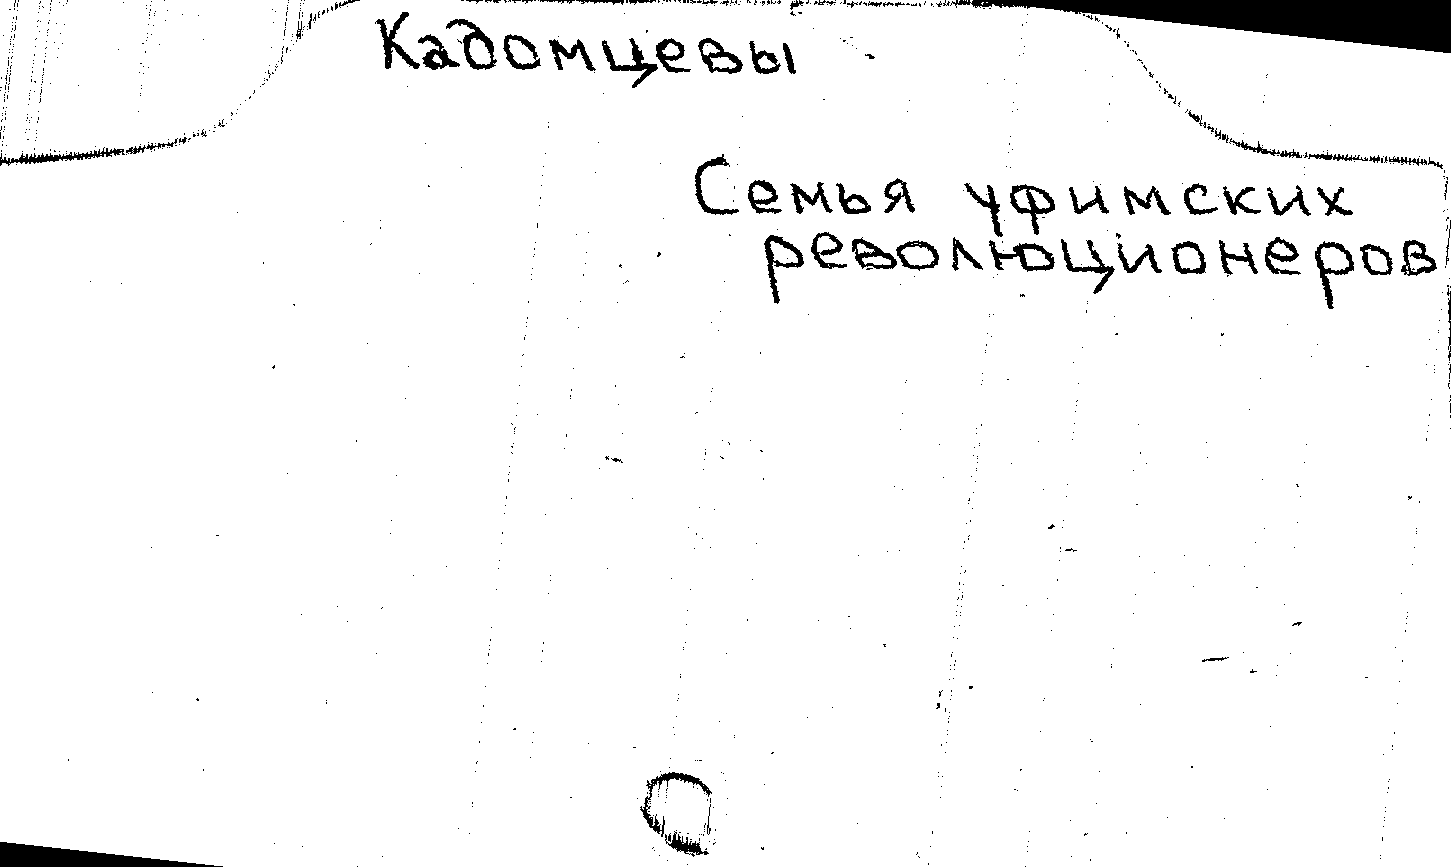 Кадомцевы
Семья уфимских
революционеров